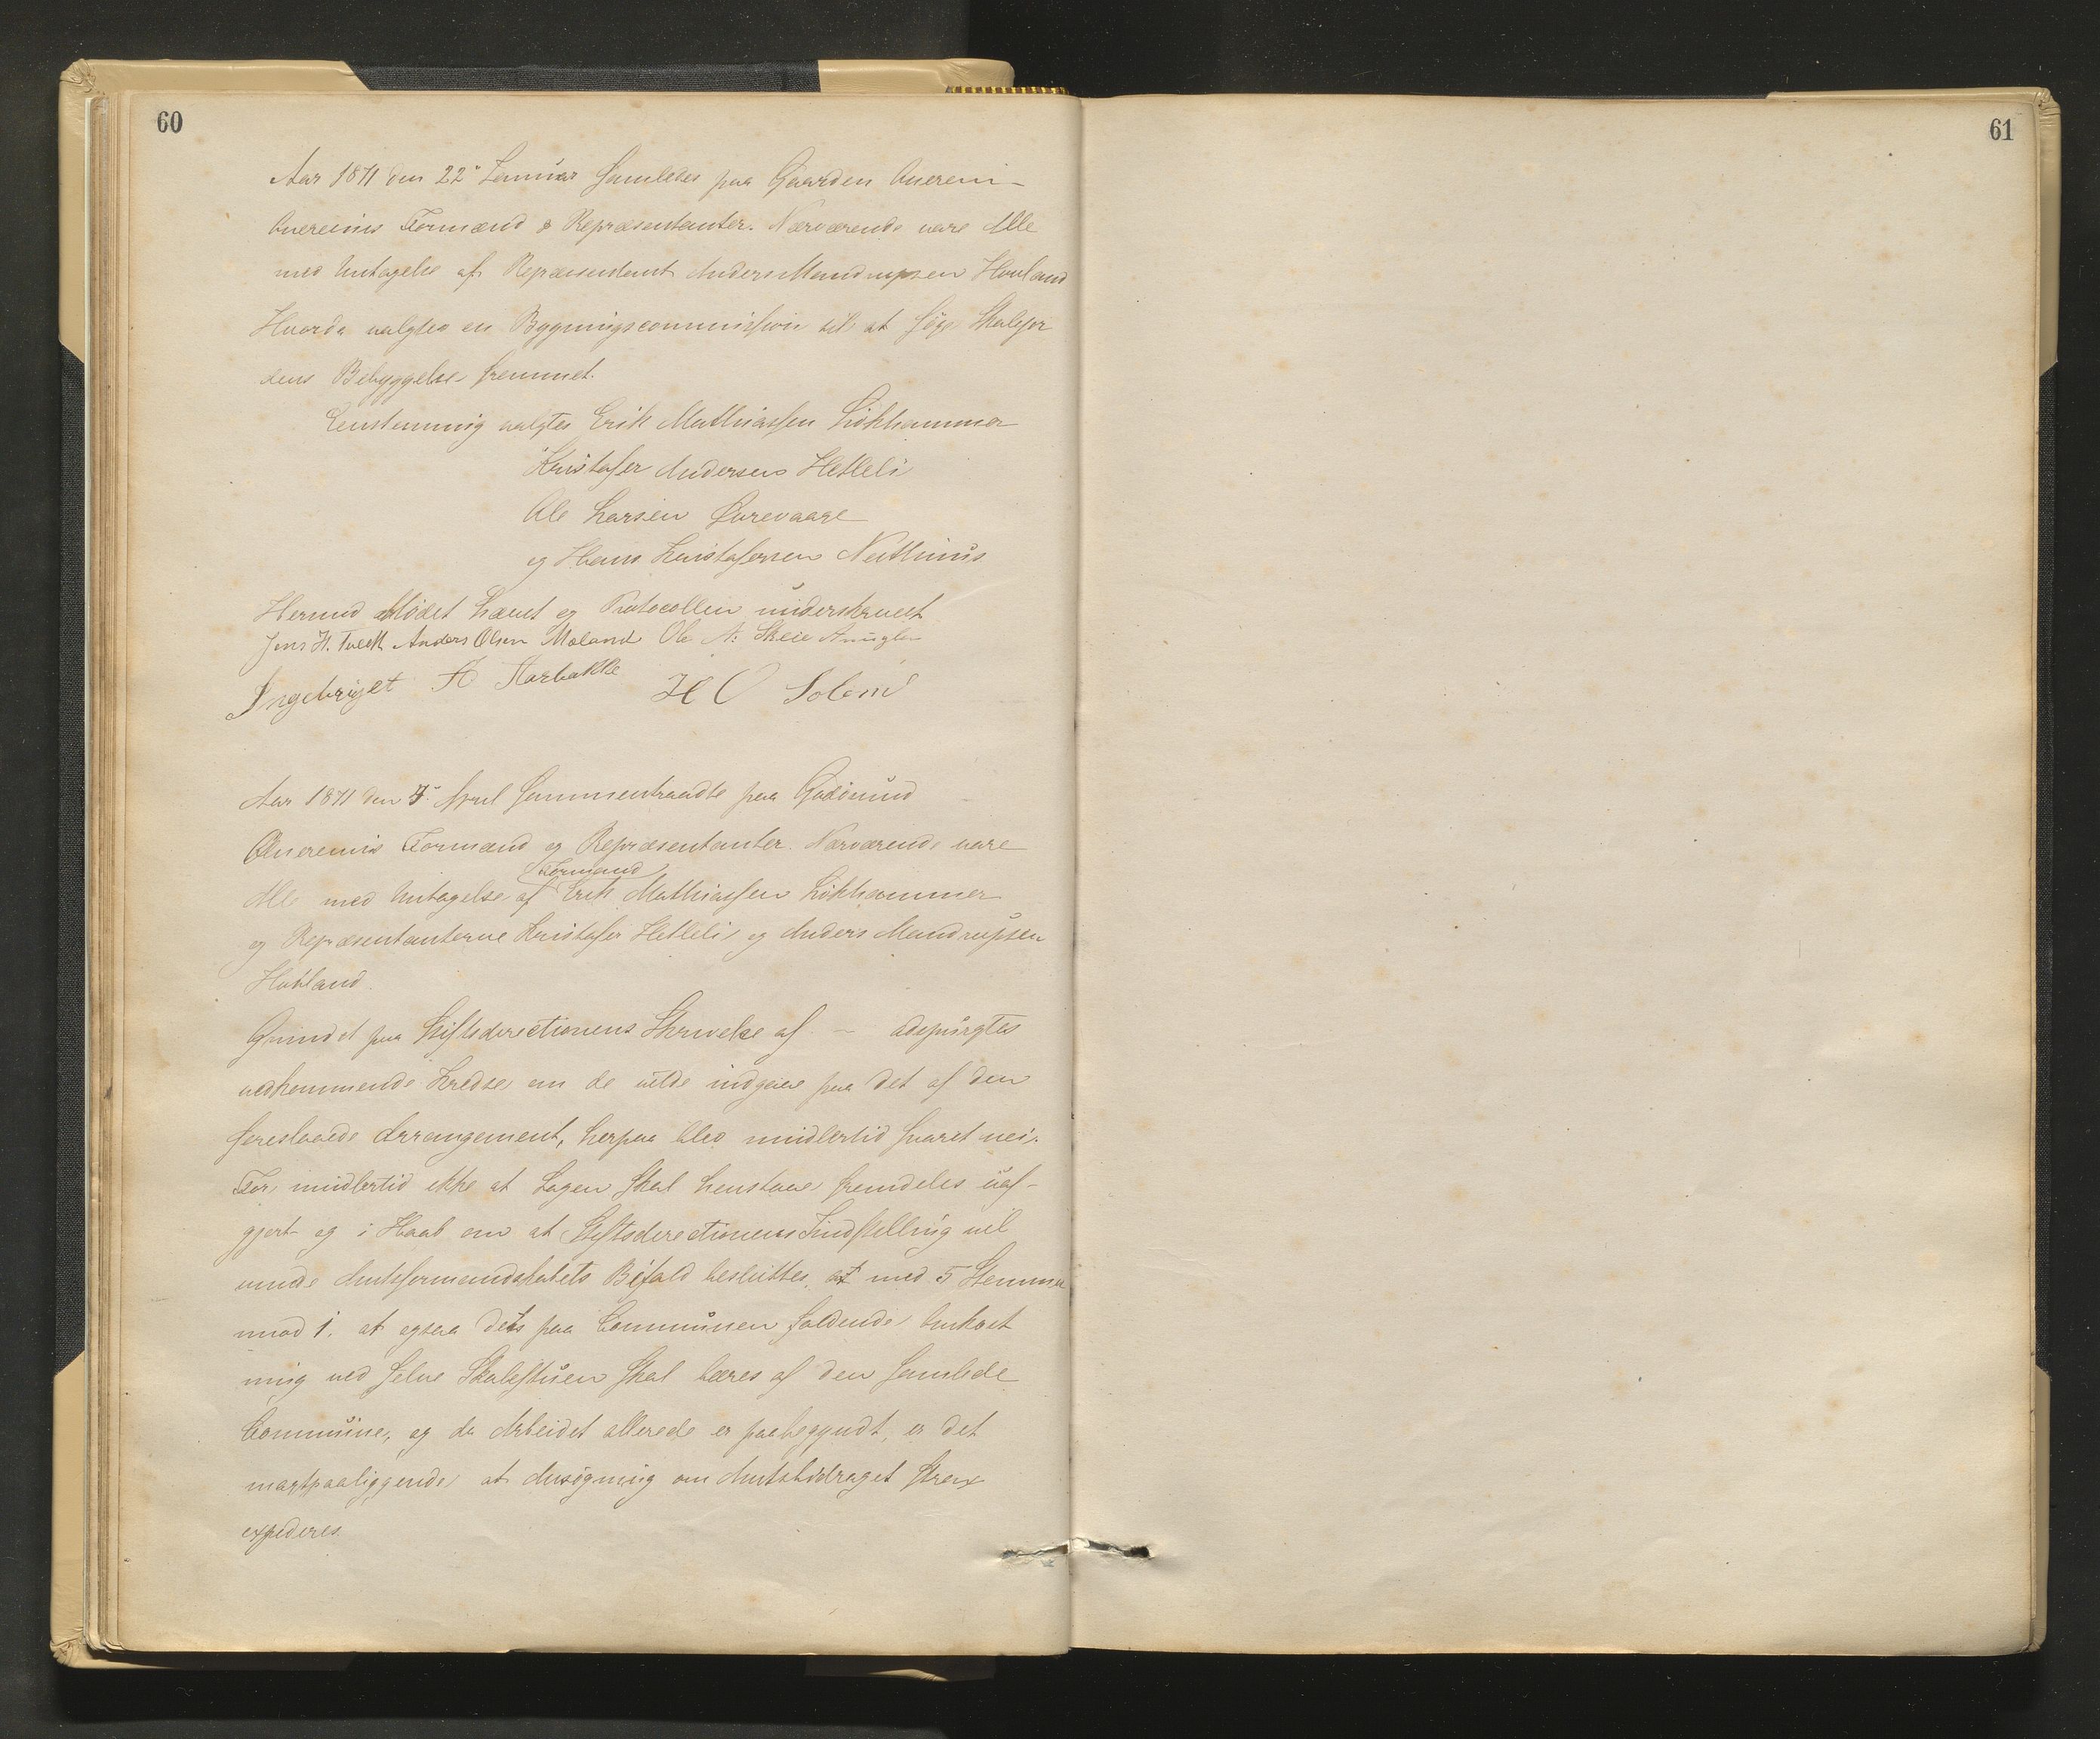 60
Aar 1871 den 22de Januar samledes paa Gaarden Onereim
Onereims Formænd & Repræsentanter. Nærværende vare Alle
med Untagelse af Repræsentant Anders Mandrupsen Hovland
Hvorda valgtes en Bygningscommission til at søge Skolejor
dens Bebyggelse fremmet.
Eenstemmig valgtes Erik Mathiassen Løkhammer
Kristofer Andersen Hetleli
Ole Larsen Øvrevaage
og Hans Kristofersen Neshuus
Hermed Mødet hævet og Protocollen underskrevet
Jens H. Tveit Anders Olsen Møland Ole N: Skeie Anuglen
Ingebrigt A Aarbakke H O Solem
Aar 1871 den 7de April sammentraadte paa Godøsund
Onereims Formænd og Repræsentanter. Nærværende vare
Formand
Alle med Untagelse af Erik Mathiassen Løkhammer
og Repræsentanterne Kristofer Hetleli og Anders Mandrupsen
Hovland.
Grundet paa Stiftsdirectionens Skrivelse af – adspurgtes
vedkommende Kredse om de vilde indgaae paa det af den
foreslaaede Arrangement, herpaa blev imidlertid svaret nei.
For imidlertid ikke at Sagen skal henstaae fremdeles uaf-
gjort og i Haab om at Stiftsdirectionens Indstilling vil
vinde Amtsformandskabets Bifald besluttes, at med 5 Stemmer
mod 1. at ogsaa dets paa Communen faldende Omkost
ning ved selve Skolestuen skal bæres af den samlede
Commune, og da Arbeidet allerede er paabegyndt, er det
magtpaaliggende at Ansøgning om Amtsbidraget strax
expederes.
61